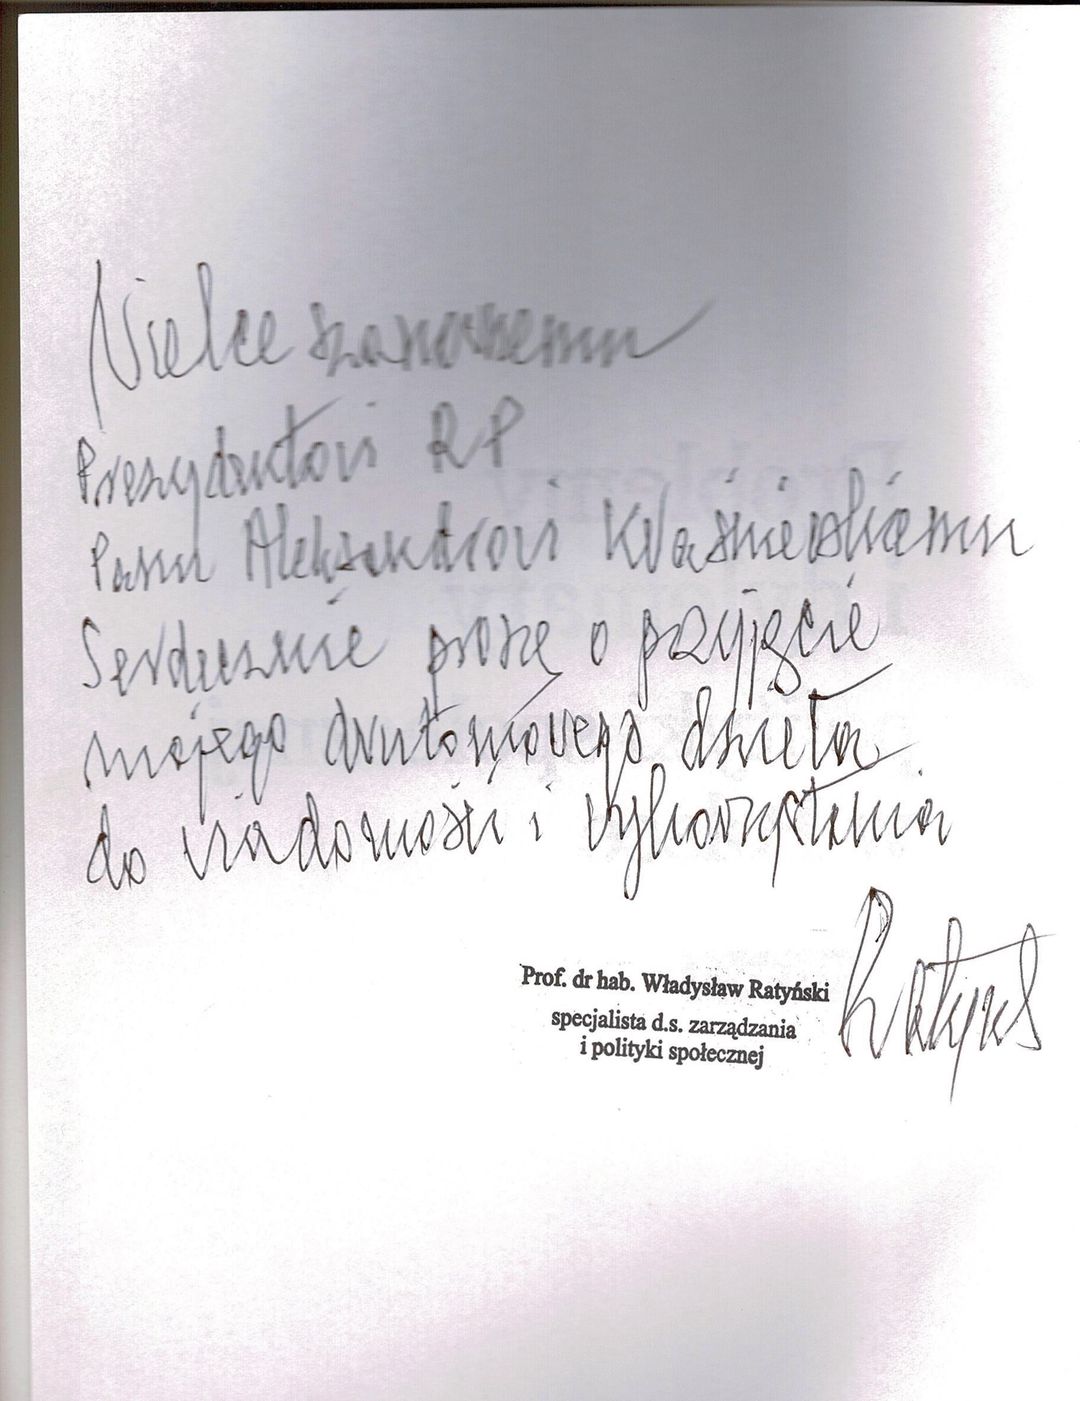 Wielce szanownemu
Prezydentowi RP
Panu Aleksandrowi Kwaśniewskiemu
Serdecznie proszę o przyjęcie
mojego dwutomowego dzieła
do wiadomości i wykorzystania
Prof. dr hab. Władysław Ratyński
specjalista d.s. zarządzania
i polityki społecznej
Problemy